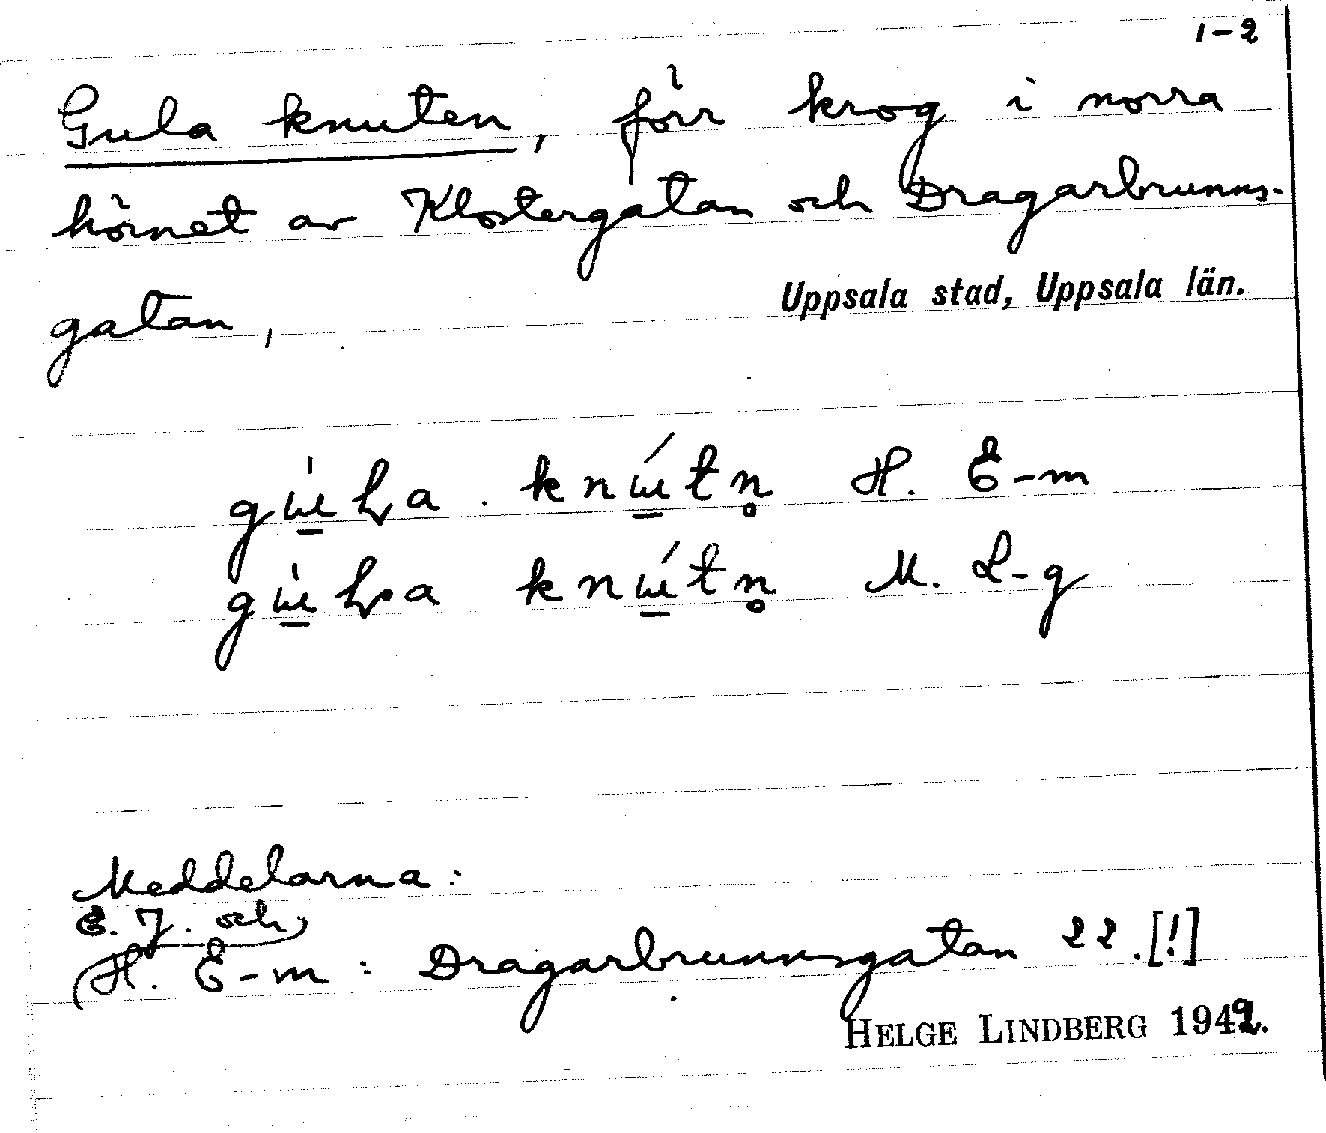 1-2
Gula knuten, förr krog i norra
hörnet av Klostergatan och Dragarbrunns-
gatan,
Uppsala stad, Uppsala län.
H. E-m
M. L-g
Meddelarna:
E. J. och
H. E-m: Dragarbrunnsgatan 22. [!]
HELGE LINDBERG 1942.